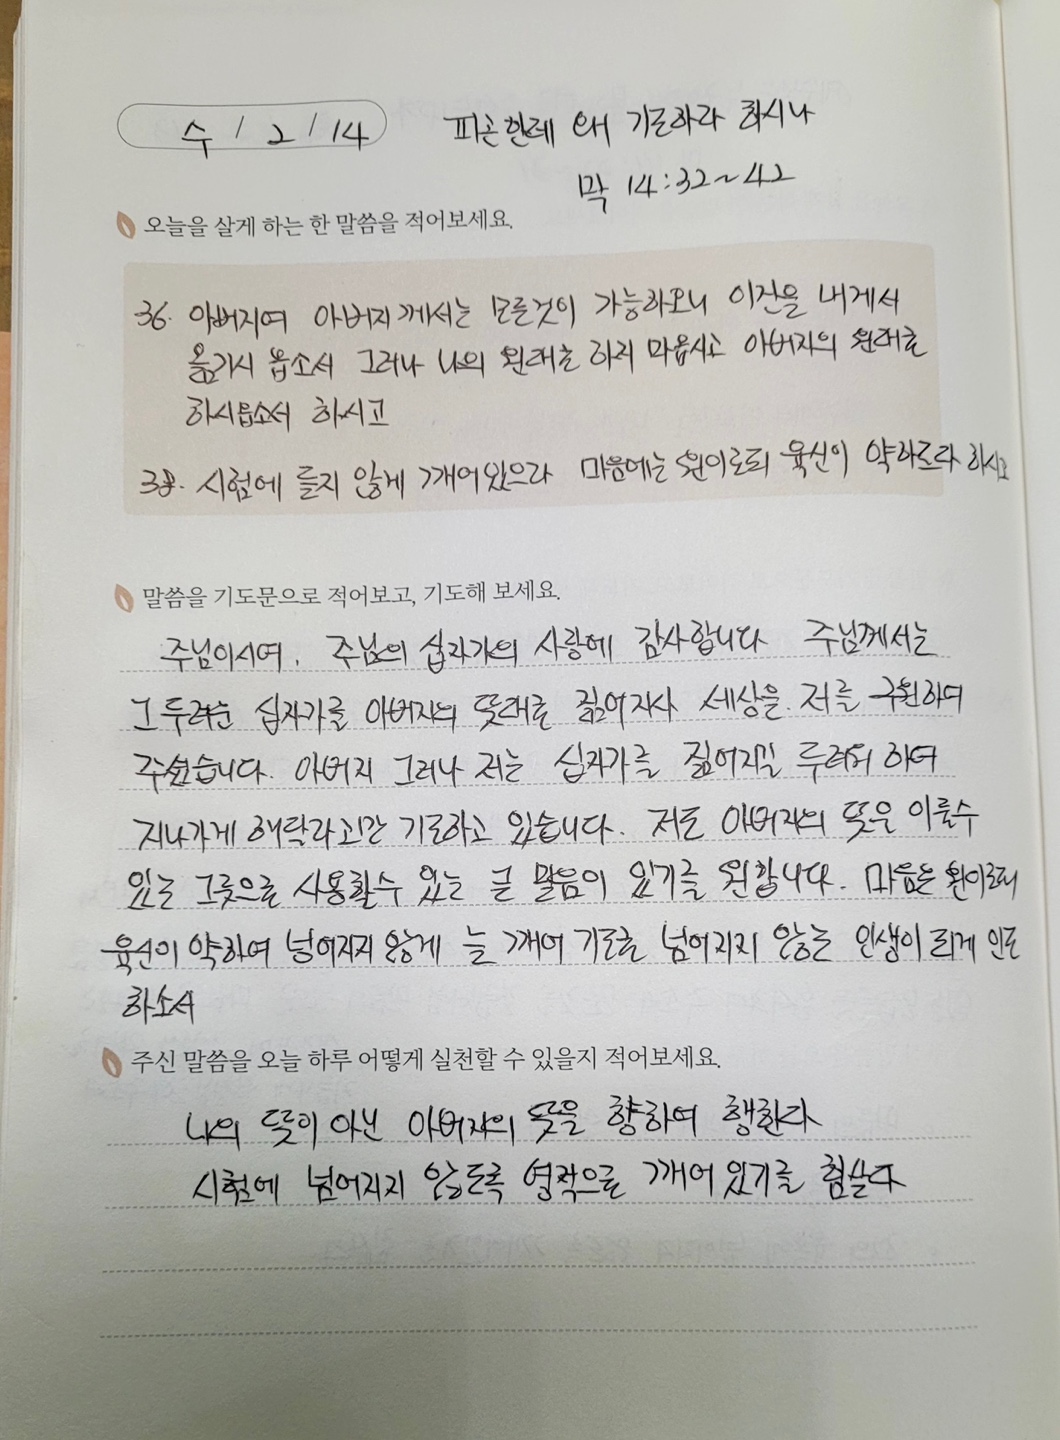 수 / 2 / 14
피곤한데 왜 기도하라 하시나
막 14:32~42
오늘을 살게 하는 한 말씀을 적어보세요.
36. 아버지여 아버지께서는 모든것이 가능하오니 이잔을 내게서
옮기시 옵소서 그러나 나의 원대로 하지 마옵시고 아버지의 원대로
하시옵소서 하시고
38. 시험에 들지 않게 깨어있으라 마음에는 원이로되 육신이 약하도다 하시고
말씀을 기도문으로 적어보고, 기도해 보세요.
주님이시여, 주님의 십자가의 사랑에 감사합니다 주님께서는
그 두려운 십자가를 아버지의 뜻대로 짊어지사 세상을 저를 구원하여
주셨습니다. 아버지 그러나 저는 십자가를 짊어지길 두려워 하여
지나가게 해달라고만 기도하고 있습니다. 저도 아버지의 뜻은 이룰수
있는 그릇으로 사용할수 있는 큰 믿음이 있기를 원합니다. 마음은 원이로되
육신이 약하여 넘어지지 않게 늘 깨어 기도로 넘어지지 않는 인생이 되게 인도
하소서
주신 말씀을 오늘 하루 어떻게 실천할 수 있을지 적어보세요.
나의 뜻이 아닌 아버지의 뜻을 향하여 행한다
시험에 넘어지지 않도록 영적으로 깨어있기를 힘쓴다